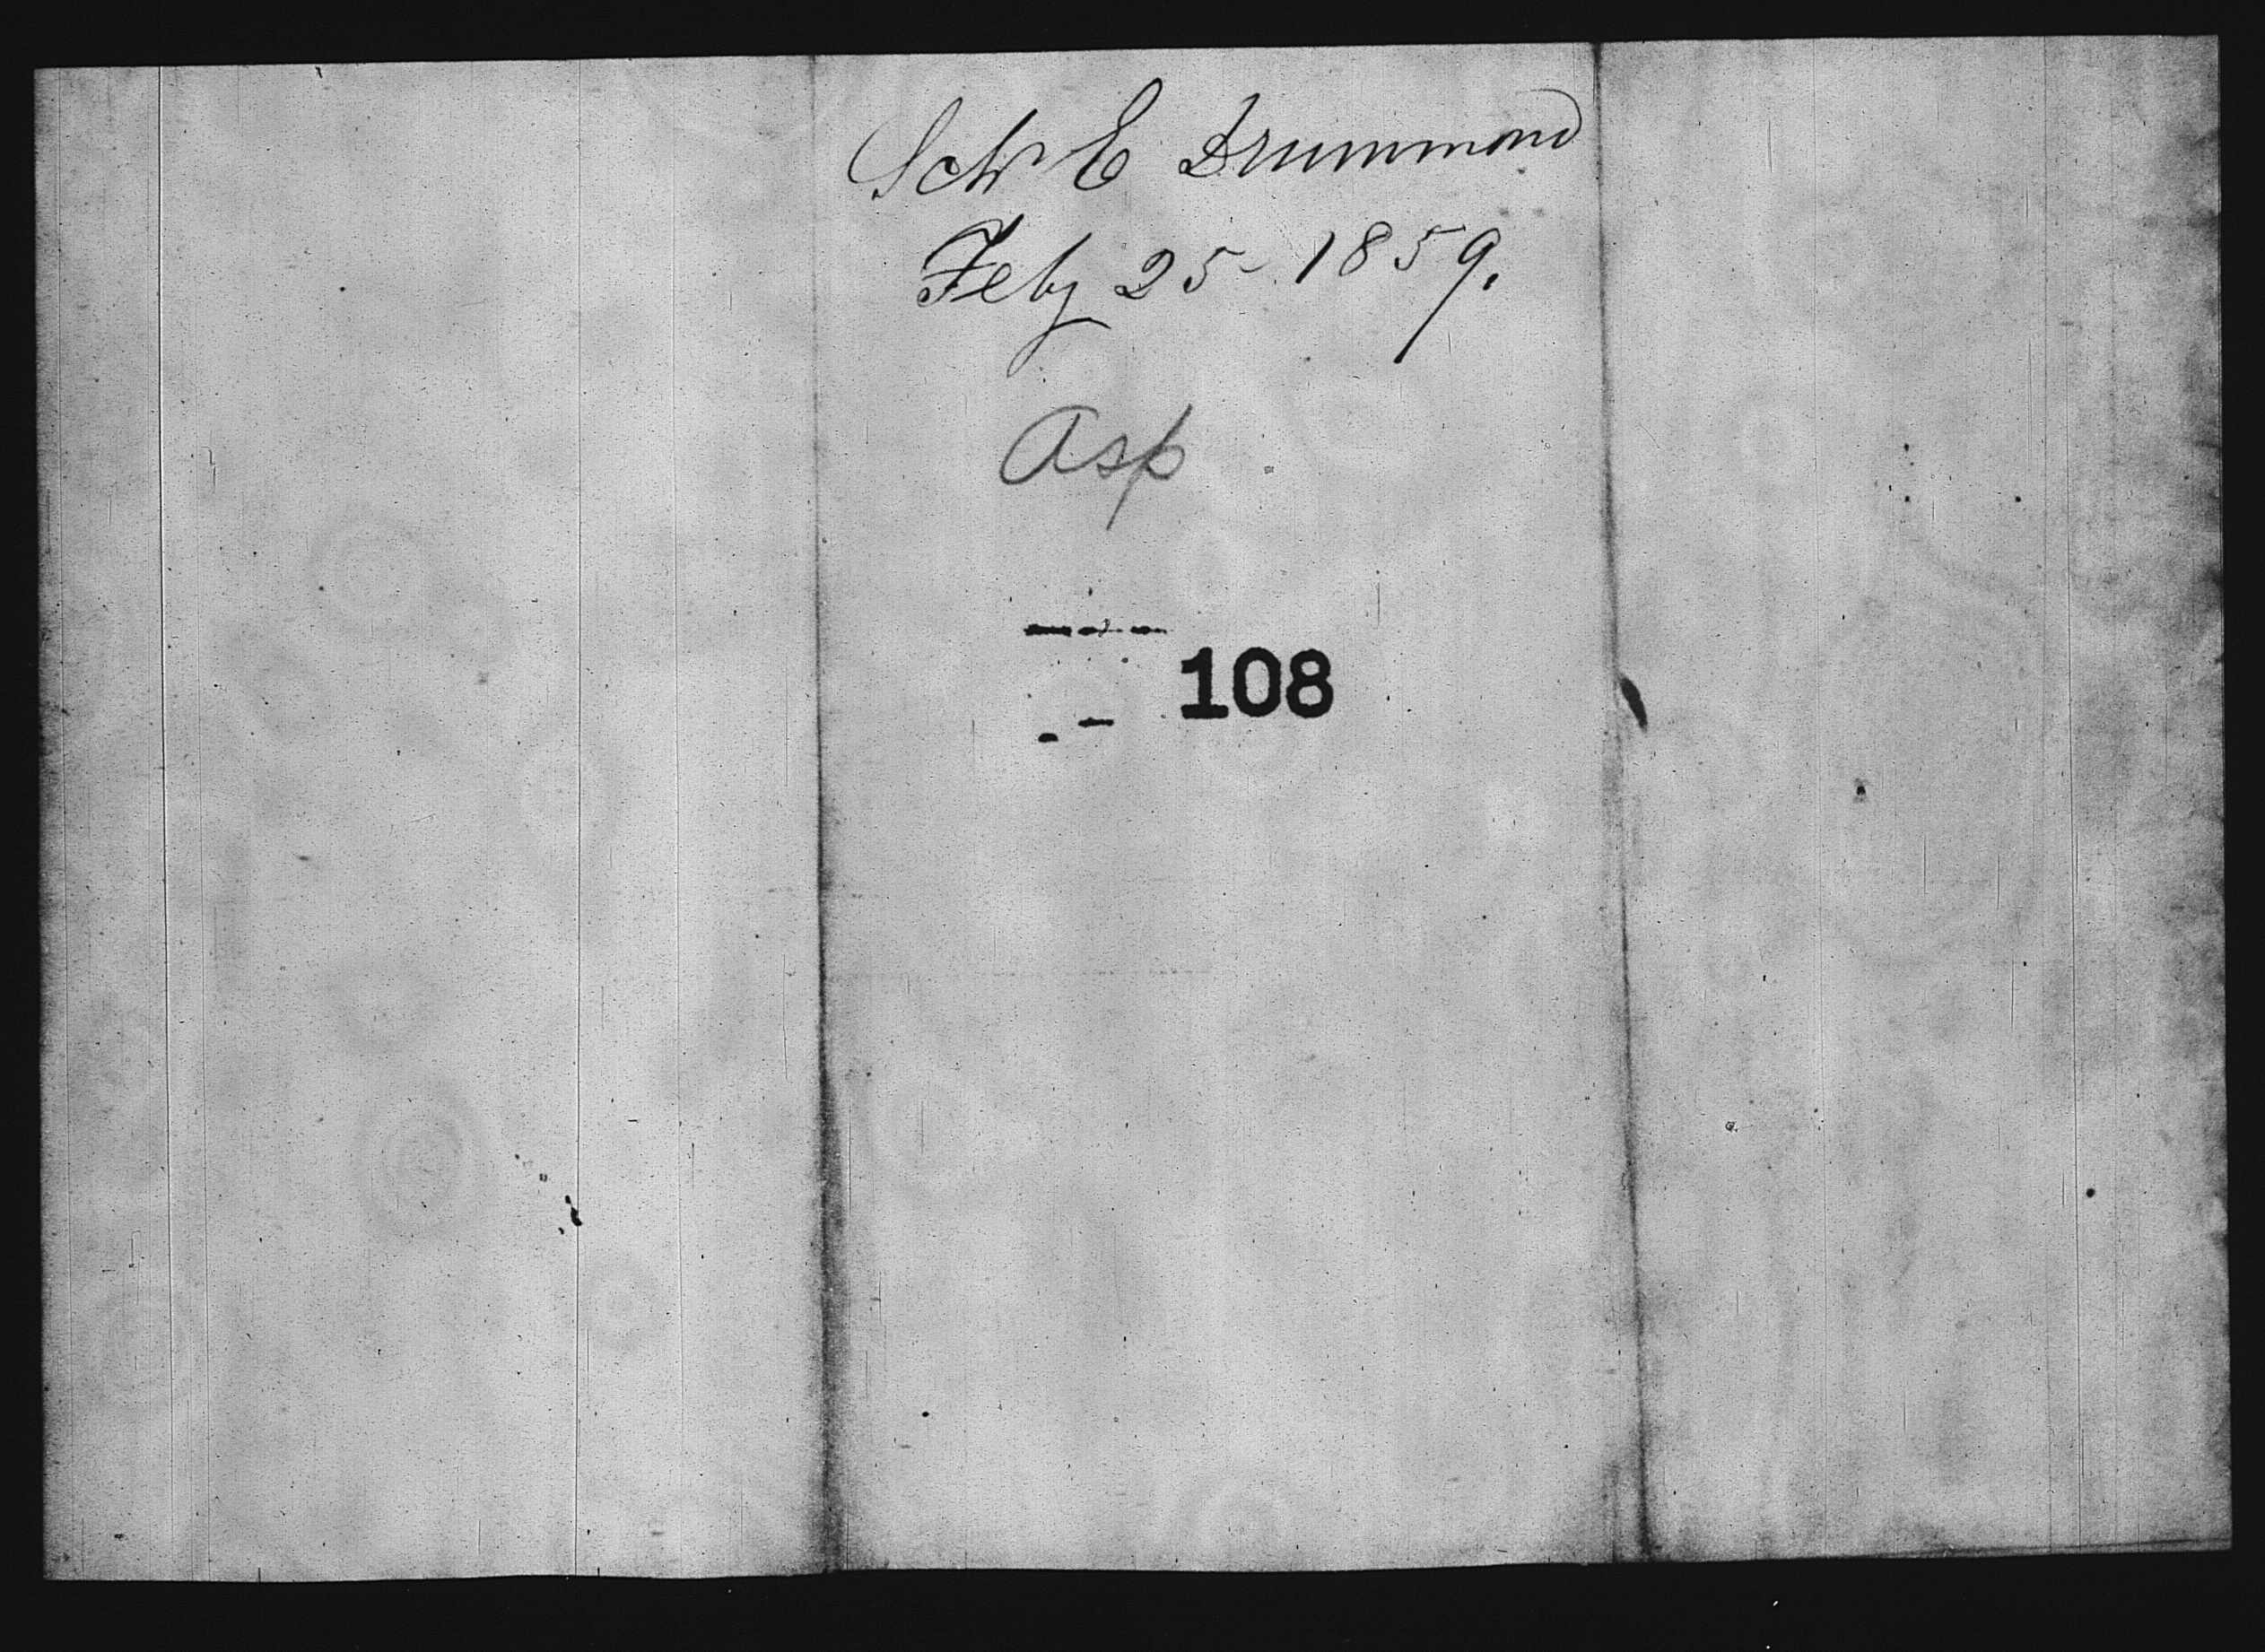 Schr E Drummond
Feby 25 - 1859.
Asp
108